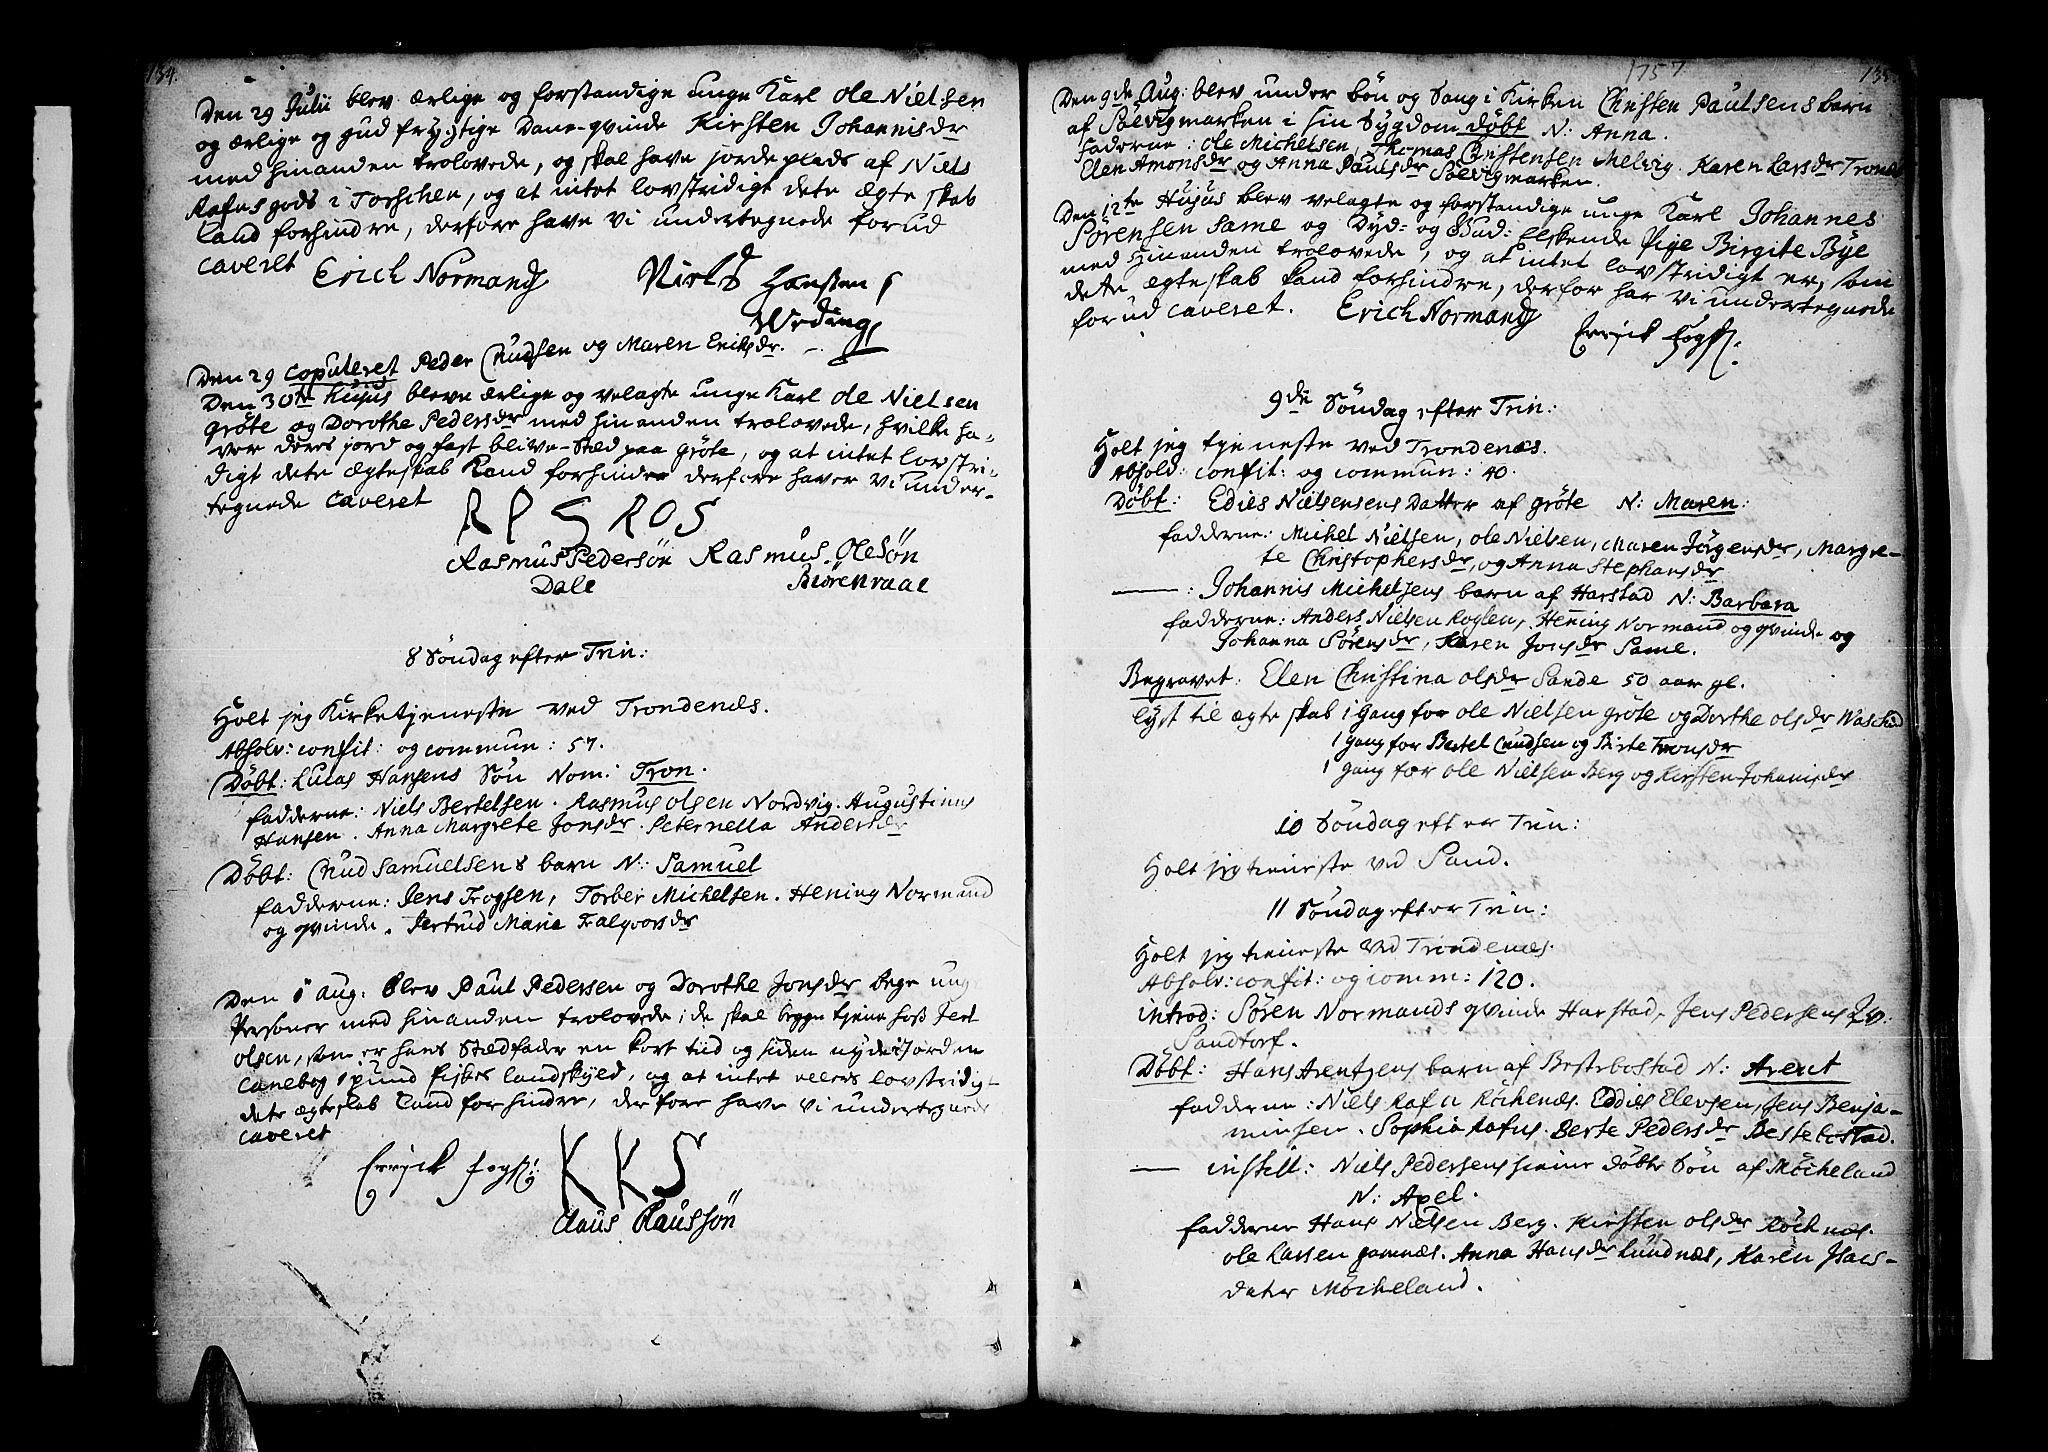 134.
Den 29 Julii blev ærlige og forstandige unge Karl Ole Nielsen
og ærlige og gud frygtige Dane-qvinde Kirsten Johannisdr
med hinanden trolovede, og skal have jordeplads af Niels
Rafns gods i Torschen, og at intet lovstridigt dete ægteskab
kand forhindre, derfore have vi undertegnede forud
caveret Erich Normand Niels Hansen
Weding
Den 29 copuleret Peder Cnudsen og Maren Eriksdr.
Den 30te hujus bleve ærlige og velagte unge Karl Ole Nielsen
Grøte og Dorothe Pedersdr med hinanden trolovede, hvilke ha-
ver deres jord og fast blive-Stæd paa Grøte, og at intet lovstri-
digt dete ægteskab kand forhindre derfore haver vi under-
tegnede caveret
R P S R O S
Rasmus Pedersøn Rasmus Olesøn
Dale Biørenraae
8 Søndag efter Trin:
Holt jeg Kirketjeneste ved Trondenæs.
Absolv: confit: og commun: 57.
Døbt: Lucas Hansens Søn Nom: Tron.
fadderne: Niels Bertelsen. Rasmus Olsen Nordvig. Augustinus
Hansen. Anna Margrete Jonsdr. Peternella Andersdr
Døbt: Cnud Samuelsens barn N: Samuel
fadderne: Jens Trogsen, Torber Michelsen. Hening Normand
og qvinde. Jertrud Marie Falqvorsdr
Den 1 Aug: blev Paul Pedersen og Dorothe Jonsdr bege ung
Personer med hinanden trolovede; de skal begge tjene hoss Jert
Olsen, som er hans Stædfader en kort tiid og siden nyde jorden
Canebog 1 pund fiskes landskyld, og at intet ellers lovstridigt
dete ægteskab kand forhindre, derfore have vi undertegnede
caveret
Errick Fogs: K K S
Claus Clausøn
1757 135.
Den 9de Aug: blev under bøn og Sang i Kirken Christen Paulsens barn
af Solvigmarken i sin Sygdom døbt N: Anna.
Fadderne: Ole Michelsen, Thomas Christensen Melvig. Karen Larsdr Trones
Elen Amonsdr og Anna Paulsdr Solvigmarken.
Den 12te Hujus blev velagte og forstandige unge Karl Johannes
Sørensen Same og Dyd- og Gud: elskende Pige Birgite Bye
med hinanden trolovede, og at intet lovstridigt er, som
dete ægteskab kand forhindre, derfor har vi undertegnede
forud caveret. Erich Normand
Errick Fogs:
9de Søndag efter Trin:
Holt jeg tjeneste ved Trondenæs.
Absolv: confit: og commun: 40.
Døbt: Edies Nielsensens Datter af Grøte N: Maren:
fadderne: Michel Nielsen, Ole Nielsen, Maren Jørgensdr, Margre-
te Christophersdr, og Anna Stephansdr
—: Johannis Michelsens barn af Harstad N: Barbara
fadderne: Anders Nielsen Rogsen, Hening Normand og qvinde og
Johanna Sørensdr, Karen Jonsdr Same.
Begravet: Elen Christina Olsdr Sande 50 aar gl.
lyst til ægteskab 1 gang for Ole Nielsen Grøte og Dorthe Olsdr
1 gang for Bertel Cnudsen og Birte Tronsdr
1 gang for Ole Nielsen Berg og Kirsten Johanisdr
10 Søndag efter Trin:
Holt jeg tieneste ved Sand.
11 Søndag efter Trin:
Holt jeg tieneste ved Trondenæs.
Absolv: confit: og comm: 120.
introd: Søren Normands qvinde Harstad, Jens Pedersens qv:
Sandtorf.
Døbt: Hans Arentzens barn af Bestebostad N: Arent
fadderne: Niels Rafn Røchenæs. Eddies Elevsen, Jens Benja-
minsen. Sophia Rafns. Berte Pedersdr Bestebostad.
— instill: Niels Pedersens hieme døbte Søn af Møcheland
N: Axel.
fadderne Hans Nielsen Berg. Kirsten Olsdr Røchnæs.
Ole Larsen Gamnæs. Anna Hansdr Lundnæs, Karen Isacs-
dater Møcheland.